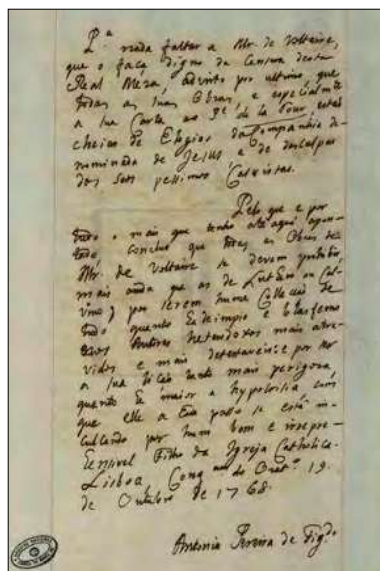 P.ª nada faltar a Mr. de Voltaire,
que o faça digno da Censura desta
Real Meza, advirto por ultimo, que
todas as suas Obras, e especialmte
a sua Carta ao Pe. de la Tour estaõ
cheias de Elogios da Companhia de-
nominada de Jesus e de desculpas
dos seus pessimos Casuistas.
Pelo que e por
tudo o mais que tenho até aqui apon-
tado, concluo que todas as Obras de
Mr. de Voltaire se devem prohibir,
mais ainda que as de Lutero ou Cal-
vino; por serem huma Collecçaõ de
tudo quanto ha de impio e blasfemo
Autores heterodoxos mais atre-
vidos e mais detestaveis: e por ser
a sua liçaõ tanto mais perigosa,
quanto he maior a hypocrisia com
que elle a cada passo se está in-
culcando por hum bom e irrepre-
hensivel Filho da Igreja Catholica.
Lisboa, Cong.am do Orat.º 19.
de Outubro de 1768.
Antonio Pereira de Figdo